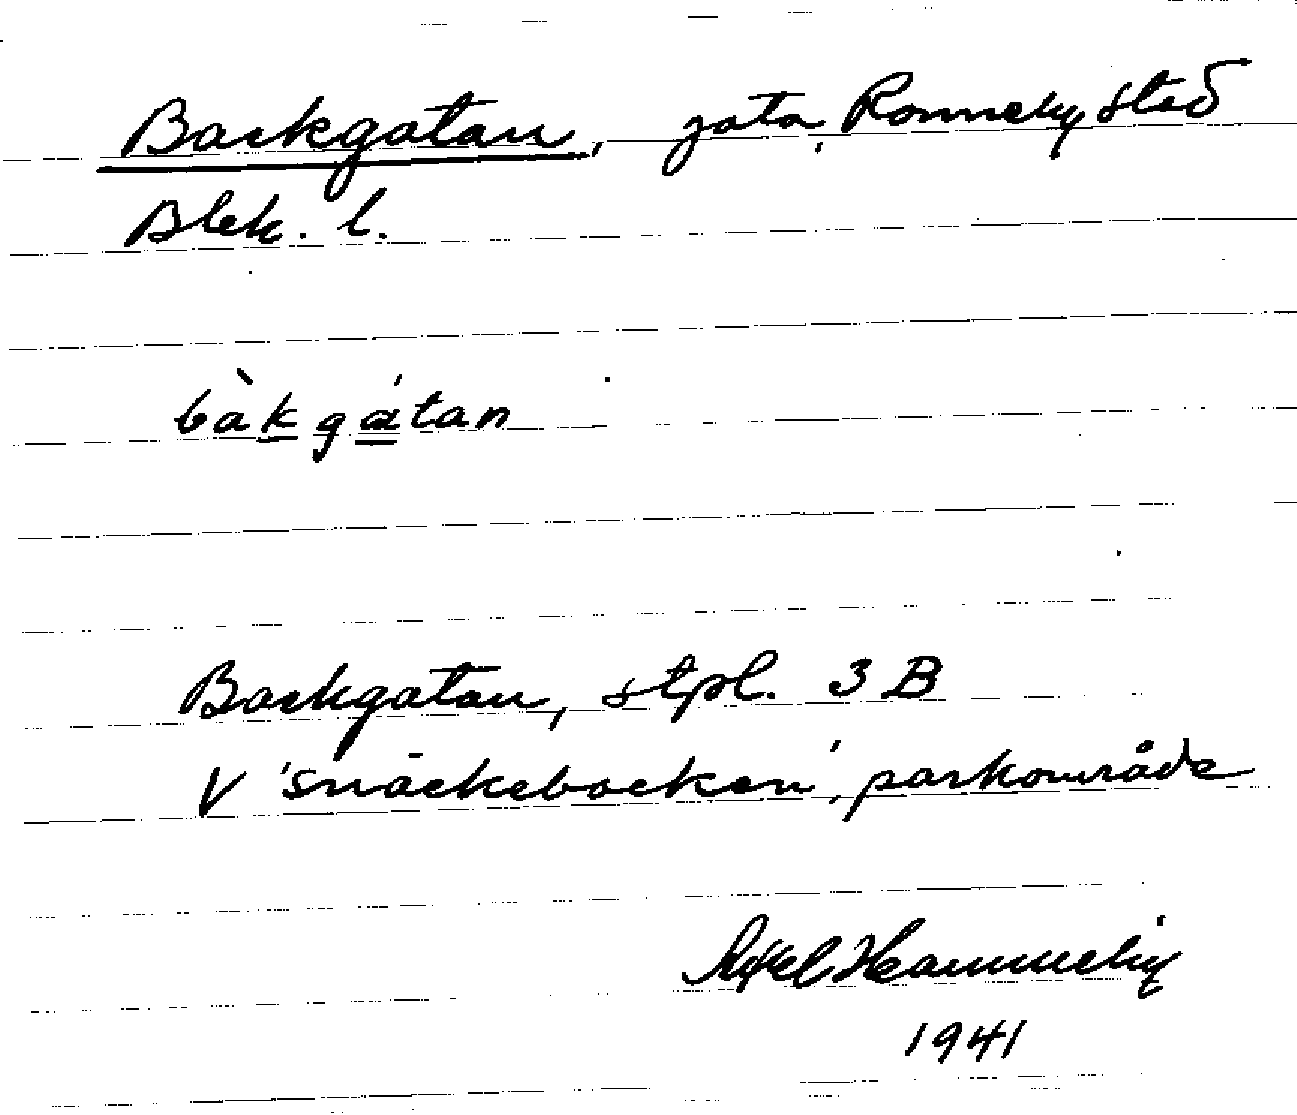 Backgatan, gata, Ronneby stad
Blek. l.
bàkgátan
Backgatan, stpl. 3 B
V 'Snäckebacken', parkområde
Axel Hammelin
1941